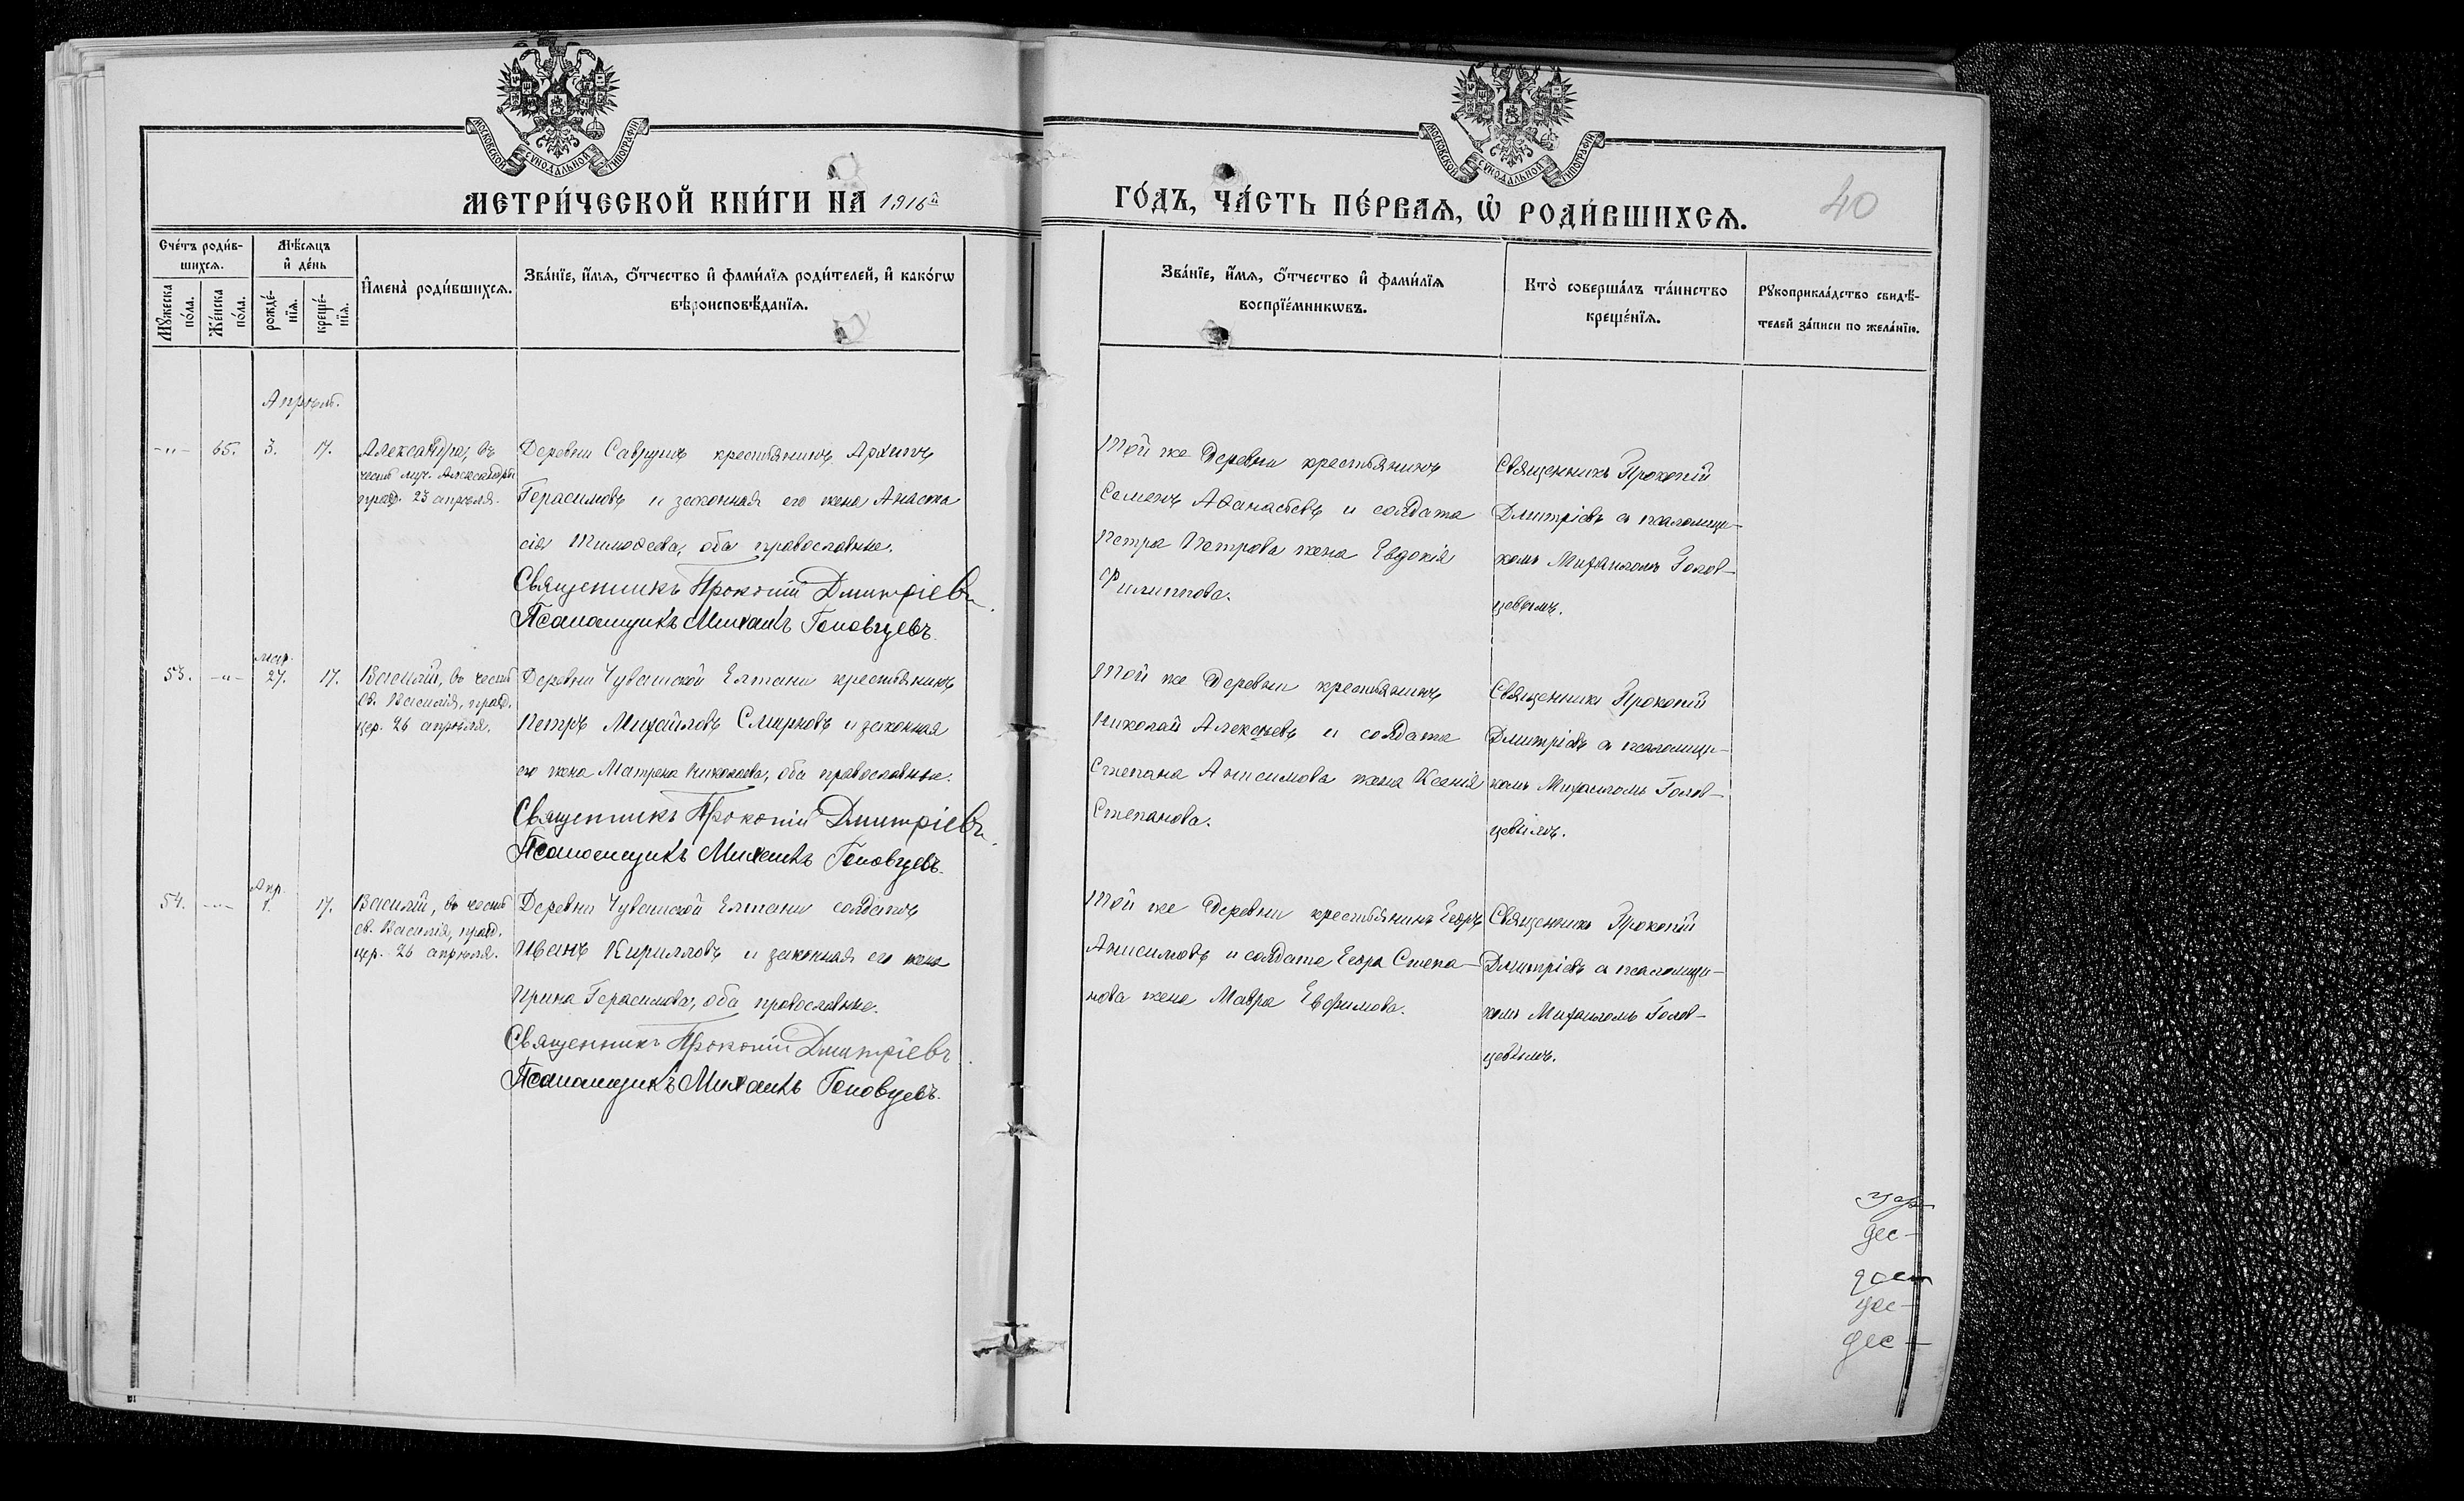 МОСКОВСКОЙ СѴНОДАЛЬНОЙ ТИПОГРАФІИ
МОСКОВСКОЙ СѴНОДАЛЬНОЙ ТИПОГРАФІИ
МЕТРИ́ЧЕСКОЙ КНИ́ГИ НА 1916й
ГО́ДЪ, ЧА́СТЬ ПЕ́РВАЯ, Ѡ РОДИ́ВШИХСЯ.
40
Сче́тъ роди́в-
шихся.
Мѣ́сяцъ
и҆ де́нь
Мꙋ́жеска
по́ла.
Же́нска
по́ла.
рожде́-
нїя.
креще́-
нїя.
И҆мена̀ роди́вшихся.
Зва́нїе, и҆́мя, ѻ҆́тчество и҆ фами́лїя роди́телей, и҆ како́гѡ
вѣроисповѣ́данїя.
Зва́нїе, и҆́мя, ѻ҆́тчество и҆ фами́лїя
воспрїе́мникѡвъ.
Кто̀ соверша́лъ та́инство
креще́нїя.
Рꙋкоприкла́дство свидѣ́-
телей за́писи по жела́нїю.
Апрѣль.
-"- 65. 3. 17.
Александра, въ
честь муч. Александры
празд. 23 апрѣля.
Деревни Саврушъ крестьянинъ Архипъ
Герасимовъ и законная его жена Анаста
сія Тимоѳеева, оба православные.
Священникъ Прокопій Дмитріевъ.
Псаломщикъ Михаилъ Головцевъ.
Той же деревни крестьянинъ
Семенъ Аѳанасьевъ и солдата
Петра Петрова жена Евдокія
Филиппова.
Священникъ Прокопій
Дмитріевъ съ псаломщи-
комъ Михаиломъ Голов-
цевымъ.
53. -"- мар. 27. 17.
Василій, въ честь
св. Василія, празд.
цер. 26 апрѣля.
Деревни Чувашской Елтани крестьянинъ
Петръ Михайловъ Смирновъ и законная
его жена Матрена Николаева, оба православные.
Священникъ Прокопій Дмитріевъ.
Псаломщикъ Михаилъ Головцевъ.
Той же деревни крестьянинъ
Николай Алексѣевъ и солдата
Степана Анисимова жена Ксенія
Степанова.
Священникъ Прокопій
Дмитріевъ съ псаломщи-
комъ Михаиломъ Голов-
цевымъ.
54. -"- Апр. 1. 17.
Василій, въ честь
св. Василія, празд.
цер. 26 апрѣля.
Деревни Чувашской Елтани солдатъ
Иванъ Кирилловъ и законная его жена
Ирина Герасимова, оба православные.
Священникъ Прокопій Дмитріевъ.
Псаломщикъ Михаилъ Головцевъ.
Той же деревни крестьянинъ Егоръ
Анисимовъ и солдата Егора Степа-
нова жена Мавра Евфимова.
Священникъ Прокопій
Дмитріевъ съ псаломщи-
комъ Михаиломъ Голов-
цевымъ.
дес-
дес-